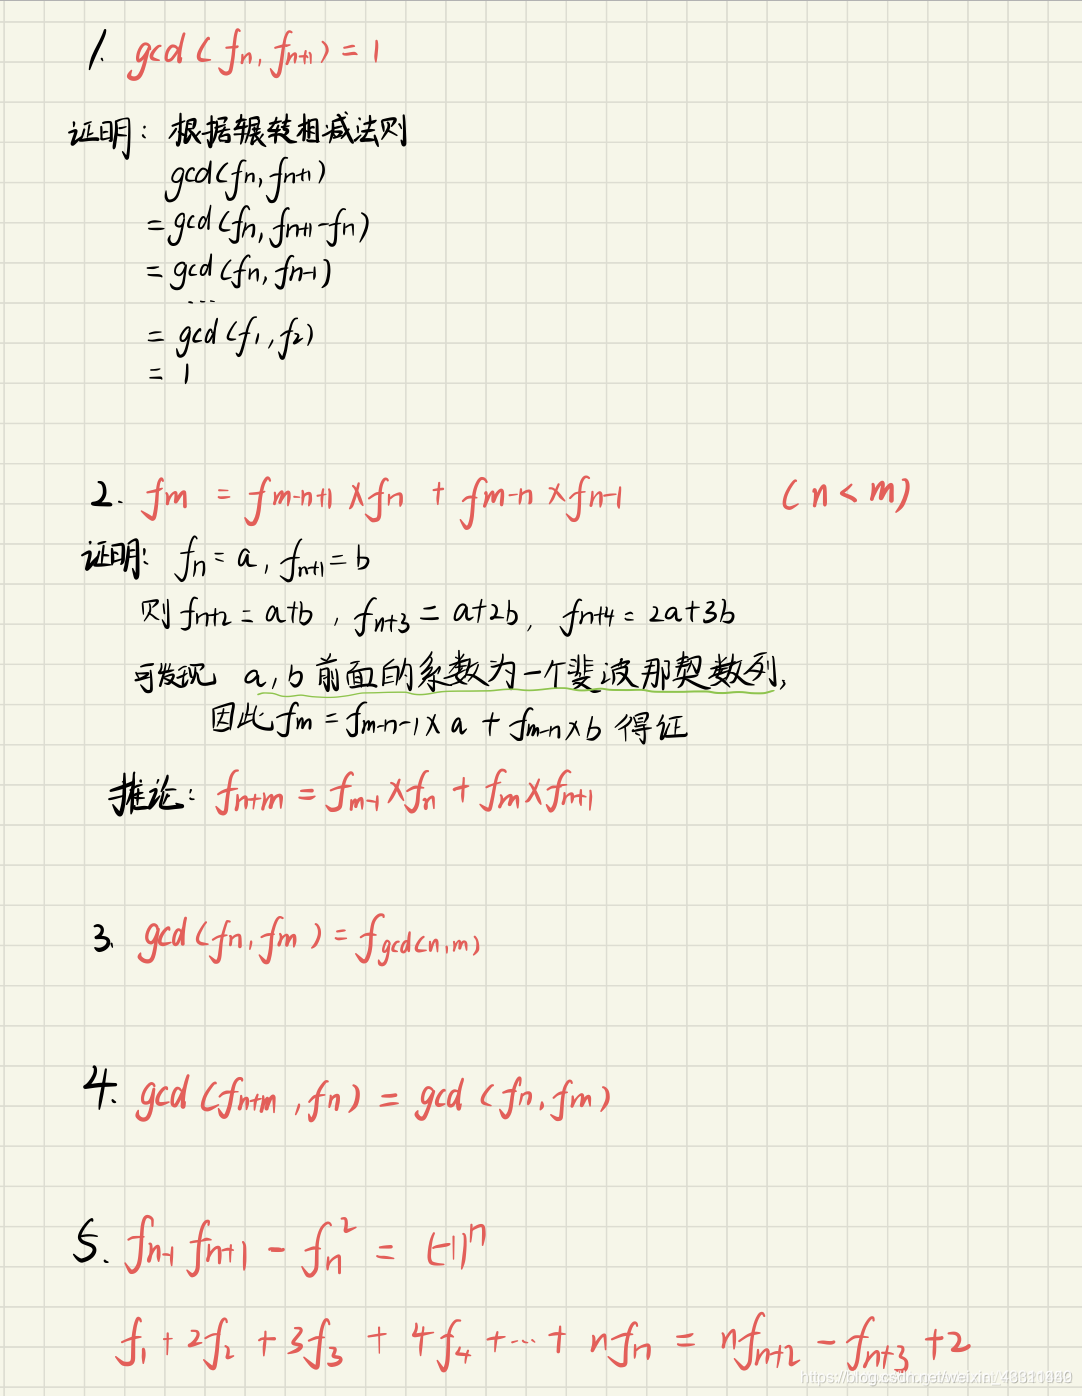 1. gcd(fn, fn+1) = 1
证明: 根据辗转相减法则
gcd(fn, fn+1)
= gcd(fn, fn+1-fn)
= gcd(fn, fn-1)
...
= gcd(f1, f2)
= 1
2. fm = fm-n+1 × fn + fm-n × fn-1 (n < m)
证明: fn = a, fn+1 = b
则 fn+2 = a+b, fn+3 = a+2b, fn+4 = 2a+3b
可发现 a, b 前面的系数为一个斐波那契数列,
因此 fm = fm-n-1 × a + fm-n × b 得证
推论: fn+m = fm-1 × fn + fm × fn+1
3. gcd(fn, fm) = fgcd(n,m)
4. gcd(fn+m, fn) = gcd(fn, fm)
5. fn-1 fn+1 - fn² = (-1)ⁿ
f1 + 2f2 + 3f3 + 4f4 + ... + nfn = nfn+2 - fn+3 + 2